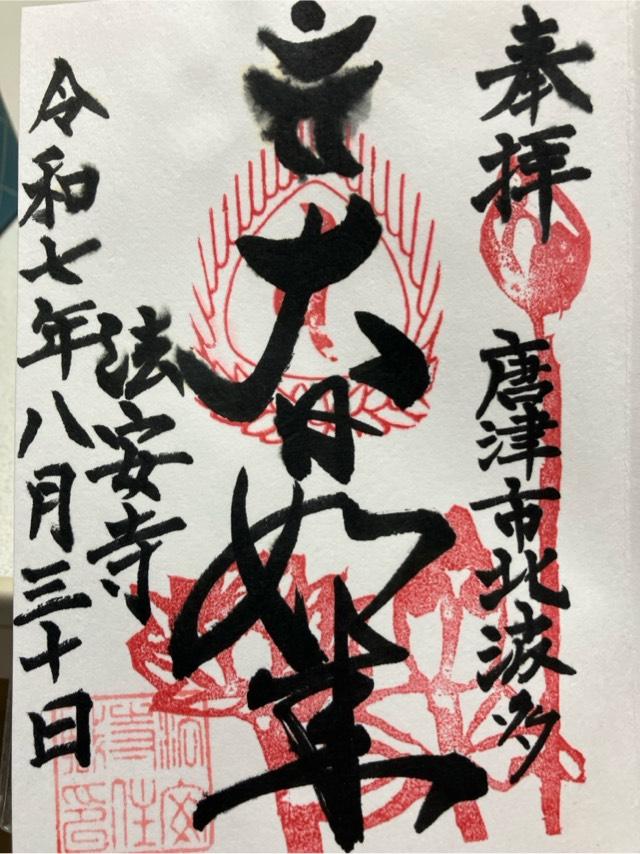 奉拝
唐津市北波多
大日如来
法安寺
令和七年八月三十日